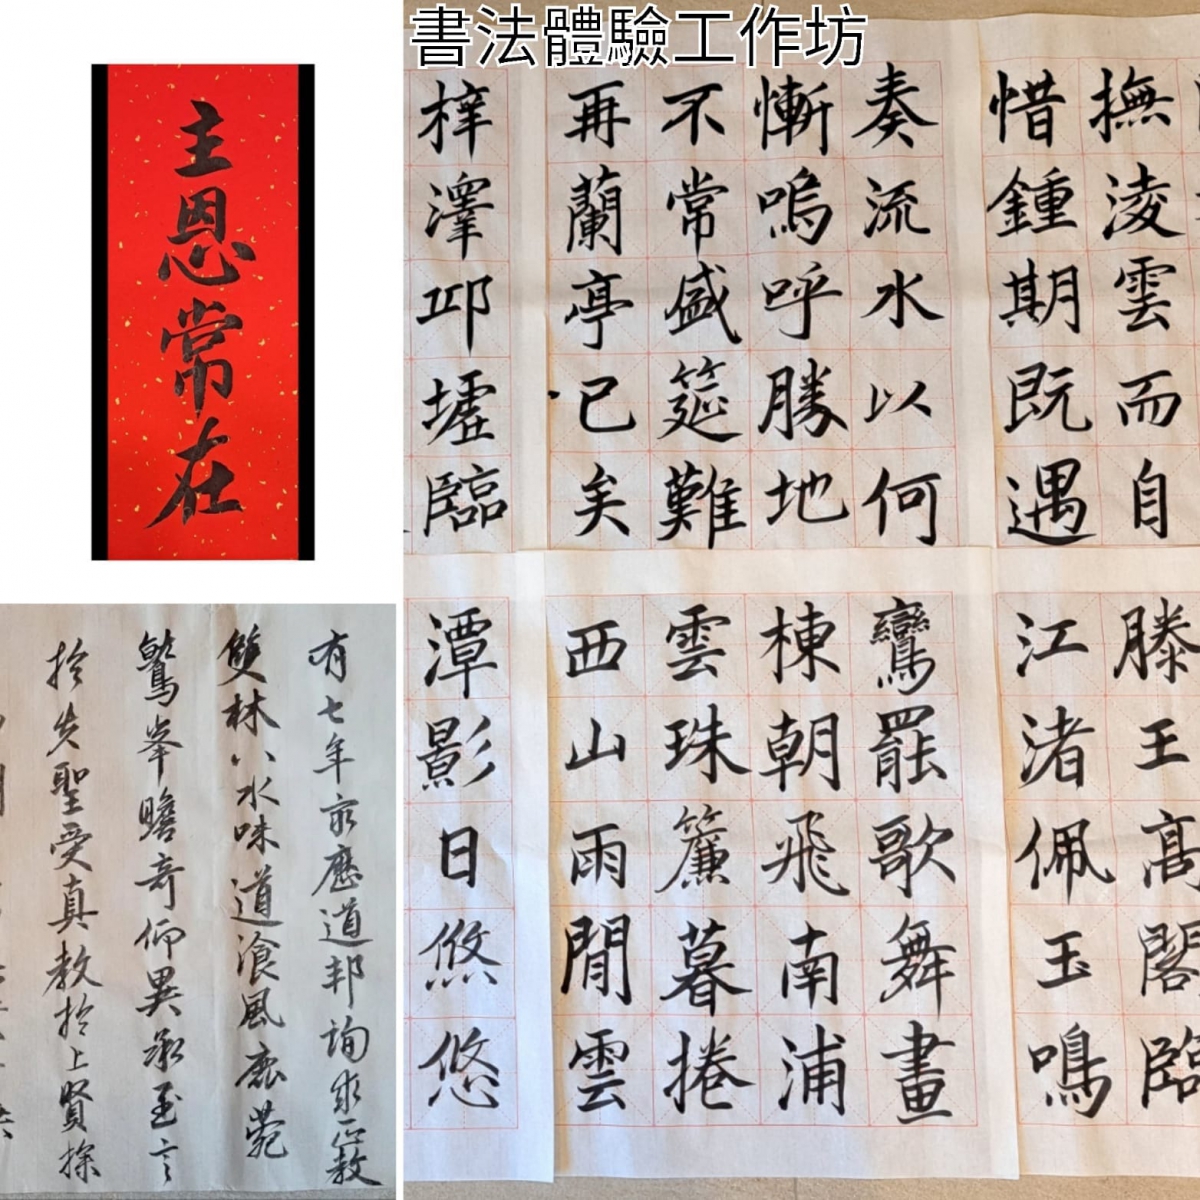 書法體驗工作坊
主恩常在
撫淩雲而自
惜鍾期既遇
奏流水以何
慚嗚呼勝地
不常盛筵難
再蘭亭已矣
梓澤邱墟臨
滕王髙閣臨
江渚佩玉鳴
鸞罷歌舞畫
棟朝飛南浦
雲珠簾暮捲
西山雨閒雲
潭影日悠悠
有七年窮歷道邦詢求正教
雙林八水味道湌風鹿菀
鷲峯瞻奇仰異承至言
於先聖受真教於上賢探